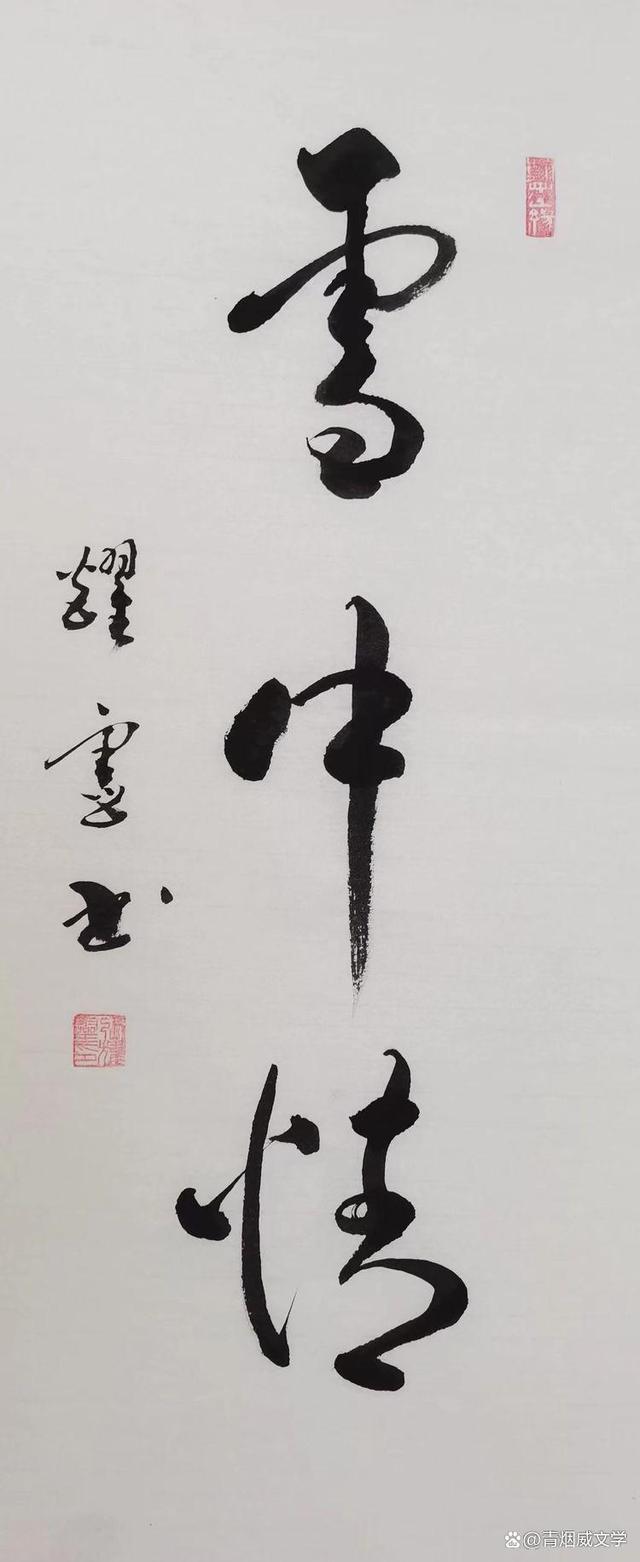 雪中情
燿靈书
@青烟威文学